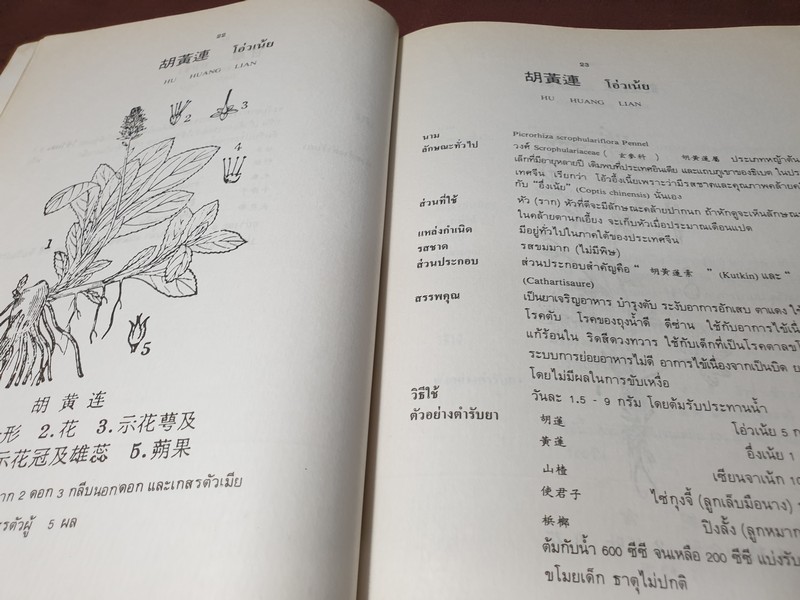 22
胡黃連 โอ่วเน้ย
HU HUANG LIAN
2
3
4
1
5
胡黄连
形 2.花 3.示花萼及
示花冠及雄蕊 5.蒴果
2 ดอก 3 กลีบนอกดอก และเกสรตัวเมีย
รตัวผู้ 5 ผล
23
胡黃連 โอ่วเน้ย
HU HUANG LIAN
นาม Picrorhiza scrophulariflora Pennel
ลักษณะทั่วไป วงศ์ Scrophulariaceae ( 玄參科 ) 胡黃蓮屬 ประเภทหญ้าต้น
เล็กที่มีอายุหลายปี เดิมพบที่ประเทศอินเดีย และแถบภูเขาของธิเบต ในประ
เทศจีน เรียกว่า โอ้วอึ้งเนี้ยเพราะว่ามีรสชาดและคุณภาพคล้าย
กับ "อึ่งเน้ย" (Coptis chinensis) นั่นเอง
ส่วนที่ใช้ หัว (ราก) หัวที่ดีจะมีลักษณะคล้ายปากนก ถ้าหักดูจะเห็นลักษณ
ในคล้ายตานกเอี้ยง จะเก็บหัวเมื่อประมาณเดือนแปด
แหล่งกำเนิด มีอยู่ทั่วไปในภาคใต้ของประเทศจีน
รสชาด รสขมมาก (ไม่มีพิษ)
ส่วนประกอบ ส่วนประกอบสำคัญคือ " 胡黃蓮素 " (Kutkin) และ "
(Cathartisaure)
สรรพคุณ เป็นยาเจริญอาหาร บำรุงตับ ระงับอาการอักเสบ ตาแดง ใช้
โรคตับ โรคของถุงน้ำดี ดีซ่าน ใช้กับอาการไข้เนื่
แก้ร้อนใน ริดสีดวงทวาร ใช้กับเด็กที่เป็นโรคตาลข
ระบบการย่อยอาหารไม่ดี อาการไข้เนื่องจากเป็นบิด ย
โดยไม่มีผลในการขับเหงื่อ
วิธีใช้ วันละ 1.5 - 9 กรัม โดยต้มรับประทานน้ำ
ตัวอย่างตำรับยา 胡蓮 โอ่วเน้ย 5 ก
黃蓮 อึ่งเน้ย 1
山楂 เซียนจาเน้ก 10
使君子 ไซ่กุงจี้ (ลูกเล็บมือนาง)
槟榔 ปิงลั้ง (ลูกหมาก
ต้มกับน้ำ 600 ซีซี จนเหลือ 200 ซีซี แบ่งรับ
ขโมยเด็ก ธาตุไม่ปกติ